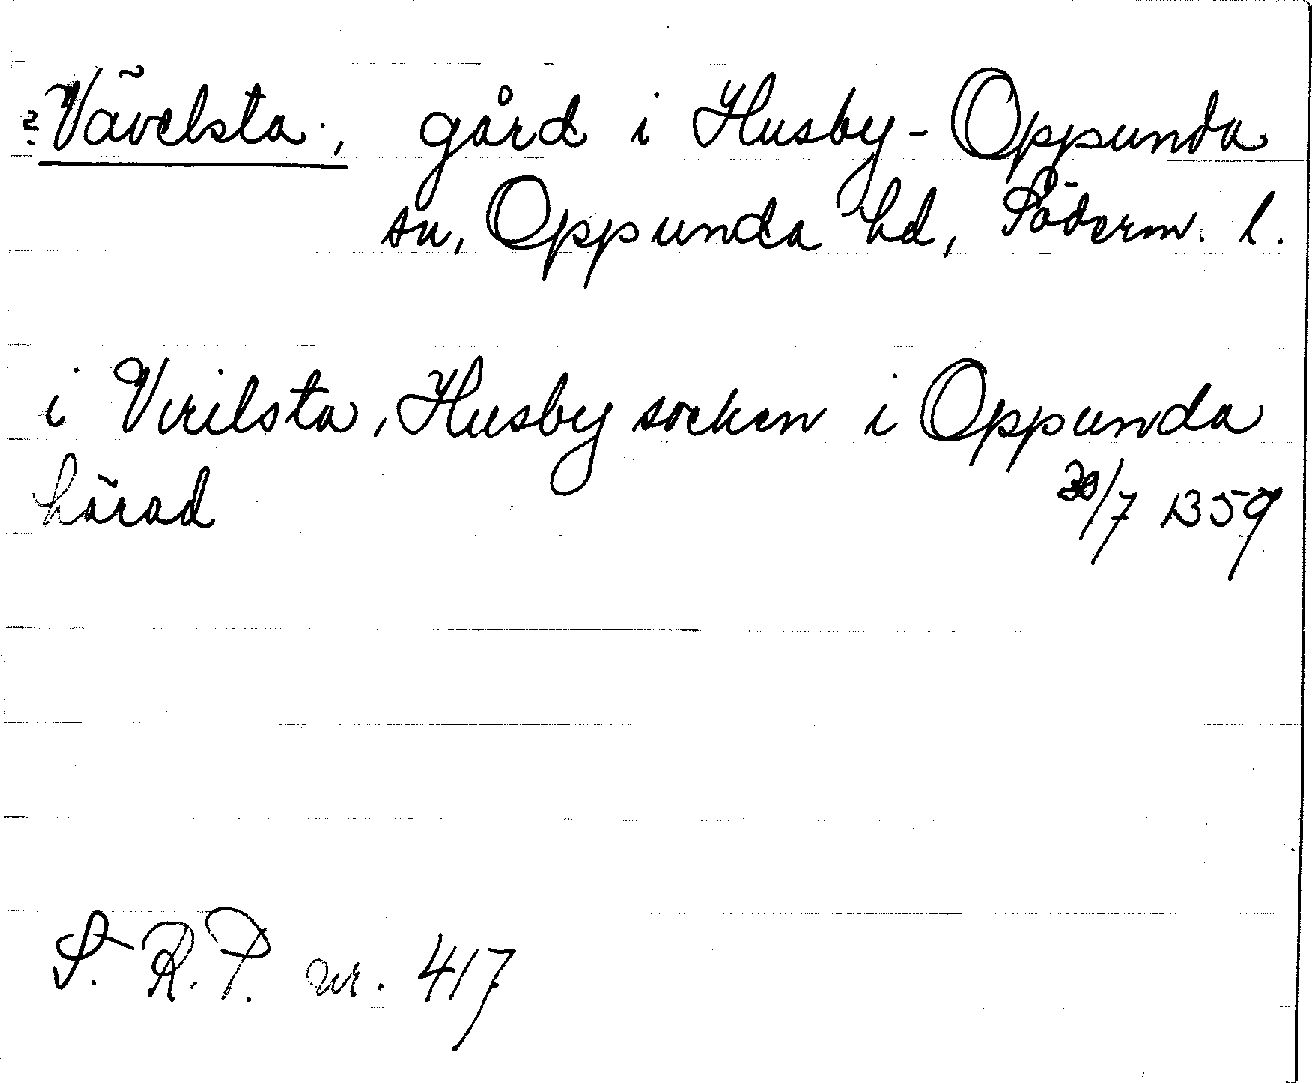 ? Vävelsta, gård i Husby-Oppunda
sn, Oppunda hd, Söderm. l.
i Virilsta, Husby socken i Oppunda
härad 30/7 1359
S. R. P. nr. 417